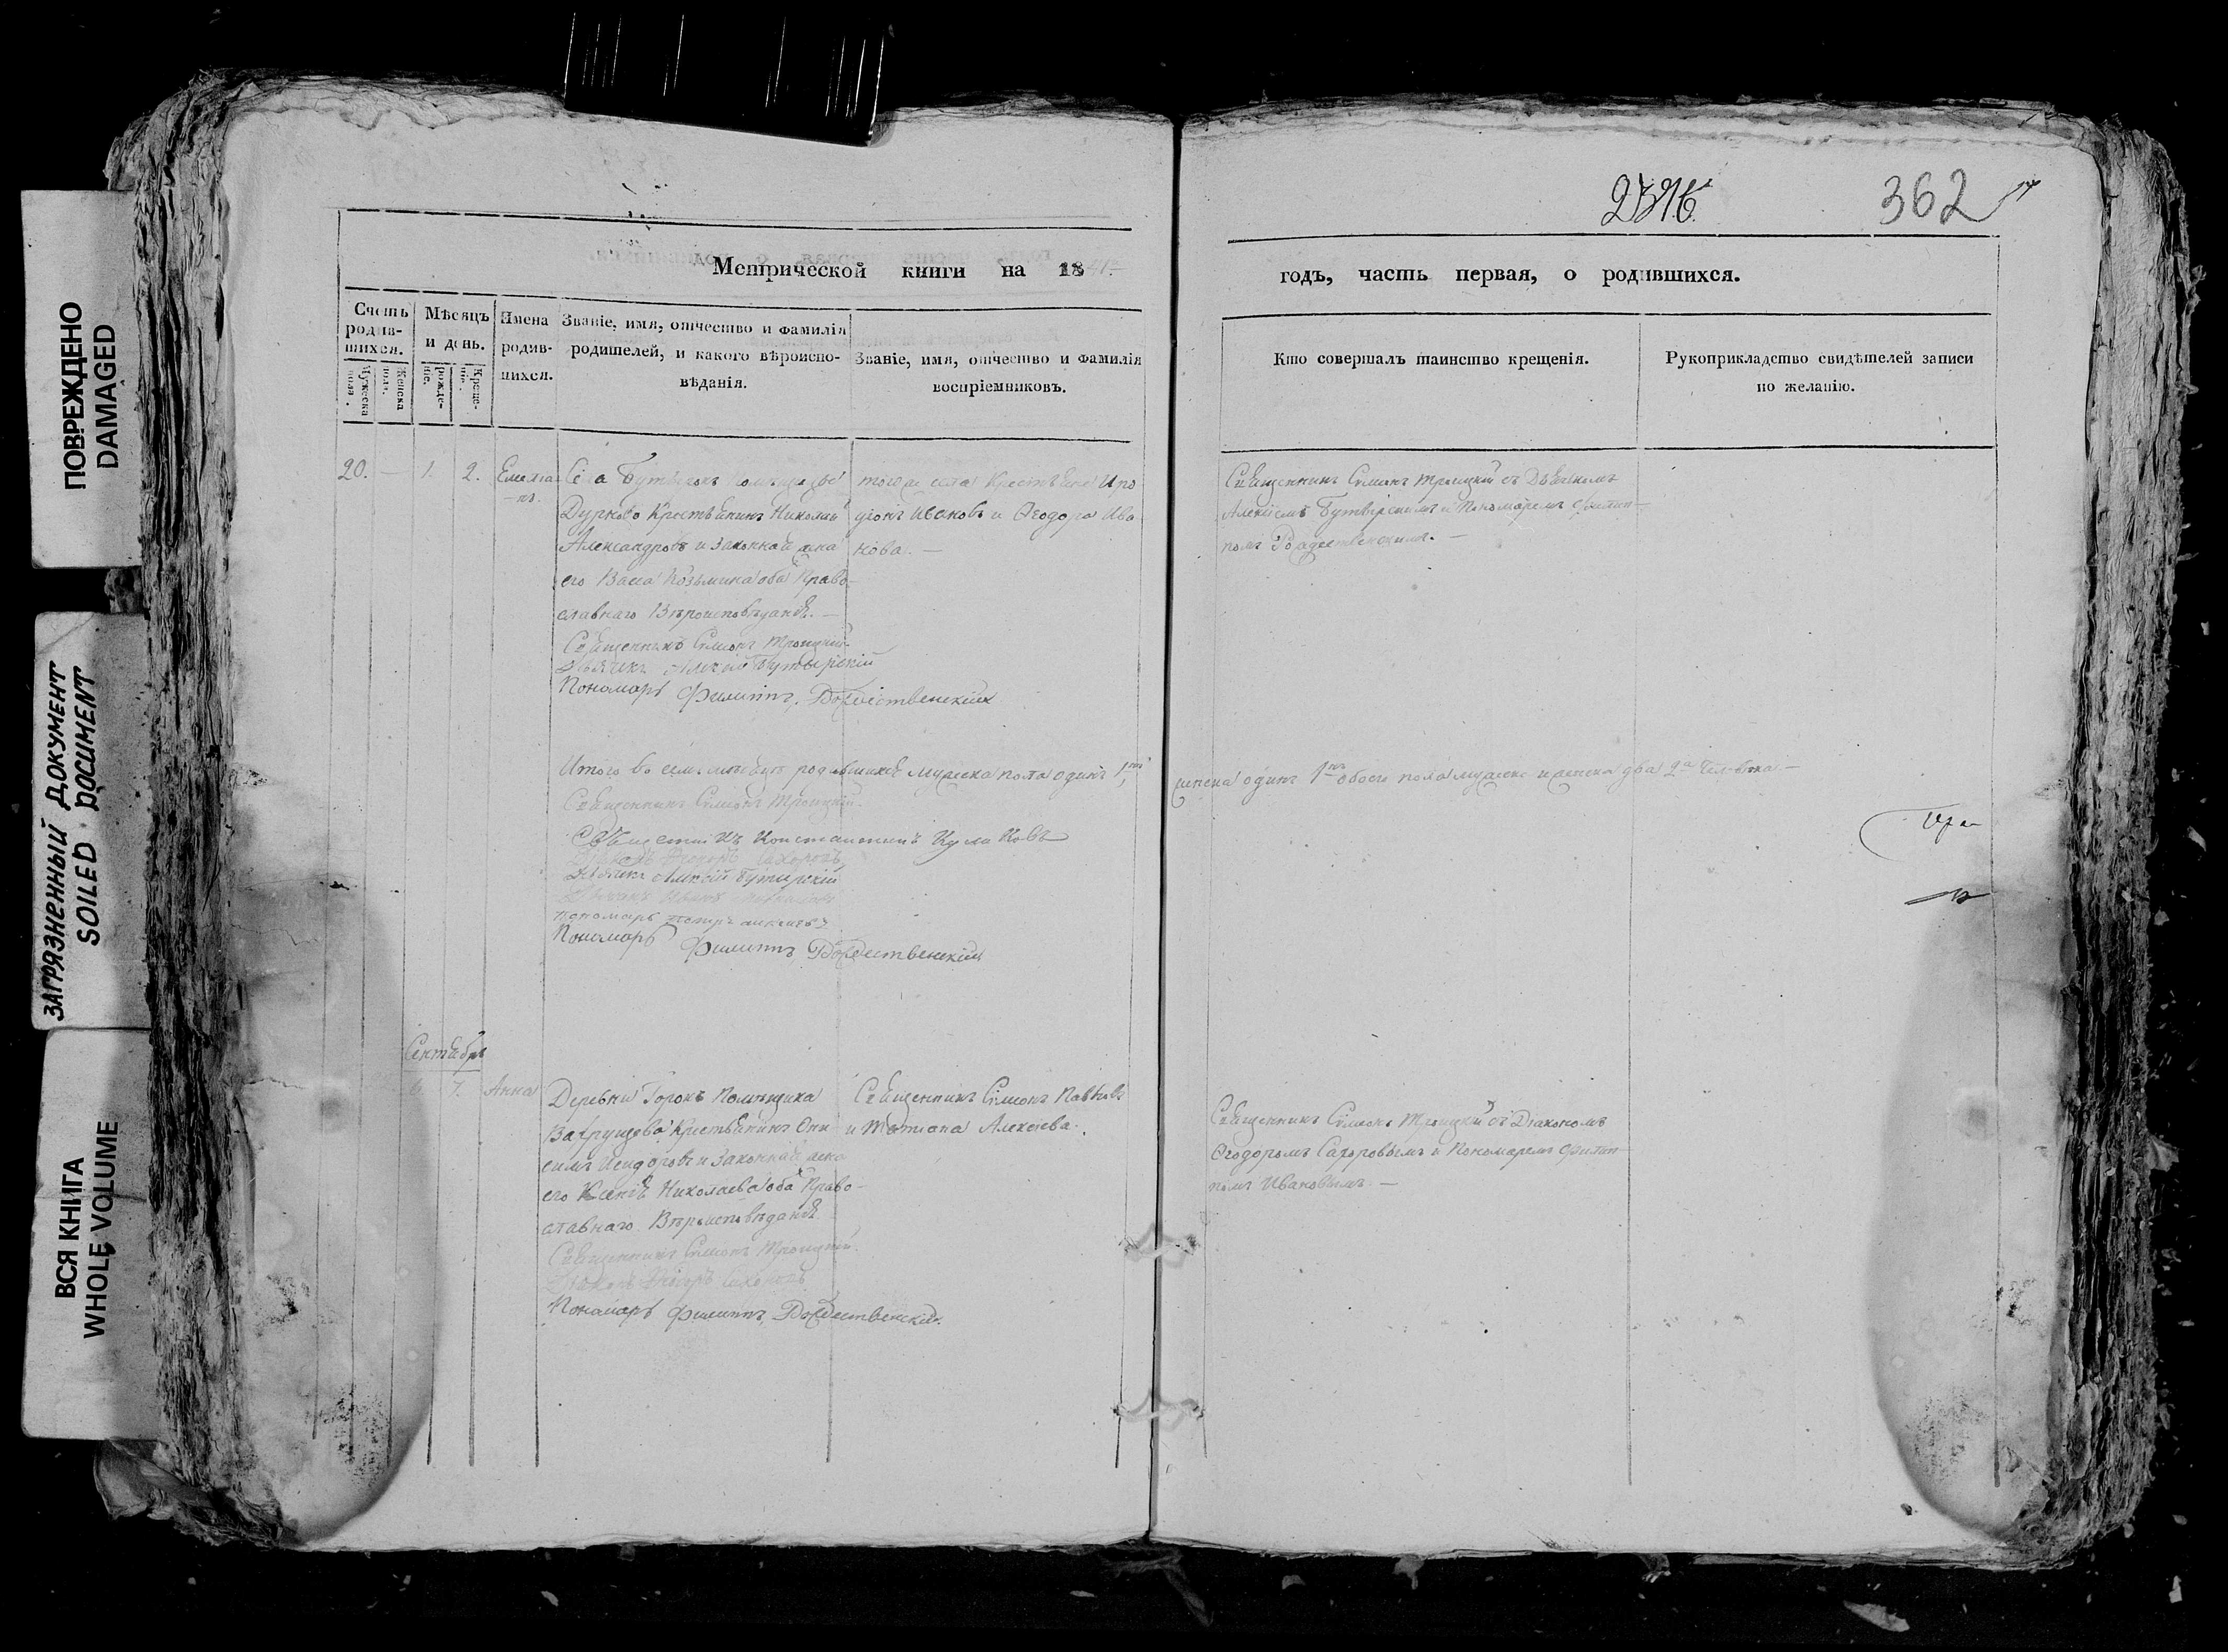 ПОВРЕЖДЕНО
DAMAGED
ЗАГРЯЗНЕННЫЙ ДОКУМЕНТ
SOILED DOCUMENT
ВСЯ КНИГА
WHOLE VOLUME
362
Метрической книги на 18
годъ, часть первая, о родившихся.
Счетъ родившихся.
Мужеска пола.
Женска пола.
Мѣсяцъ и день.
рожденіе.
Крещеніе.
Имена родившихся.
Званіе, имя, отчество и фамилія
родителей, и какого вѣроиспо-
вѣданія.
Званіе, имя, отчество и фамилія
воспріемниковъ.
Кто совершалъ таинство крещенія.
Рукоприкладство свидѣтелей записи
по желанію.
20. — 1. 2.
Емелиа-
-нъ.
Села Бутырокъ
Дурново Крестьянинъ Николай
Александровъ и законная жена
его Васса Козьмина оба Право-
славнаго Вѣроисповѣданія. —
Священникъ Симеонъ Троицкій
Дьячекъ Алексій Бутырскій
Пономарь Филиппъ Рождественскій
тогоже села Крестьяне
Ивановъ и Ѳеодора Ива
нова. —
Священникъ Симеонъ Троицкій съ Дьячкомъ
Алексіемъ Бутырскимъ и Пономаремъ Филип-
помъ Рождественскимъ. —
Итого въ семъ мѣсяцѣ родившихся мужеска пола одинъ 1нъ
женска одинъ 1нъ обоего пола мужеска и женска два 2а человѣка —
Священникъ Симеонъ Троицкій
Священникъ Константинъ Куликовъ
Дьячекъ Алексій Бутырскій
Пономарь Петръ
Пономарь Филиппъ Рождественскій
Сентябрь
6. 7. Анна
Деревни Горокъ Помѣщика
Вахрушева Крестьянинъ Они
симъ Исидоровъ и законная жена
его Ксенія Николаева оба Право-
славнаго Вѣроисповѣданія
Священникъ Симеонъ Троицкій
Пономарь Филиппъ Рождественскій
Священникъ Симеонъ Павловъ
и Татіана Алексѣева.
Священникъ Симеонъ Троицкій съ Діакономъ
Ѳеодоромъ Сахаровымъ и Пономаремъ Филип-
помъ Ивановымъ. —